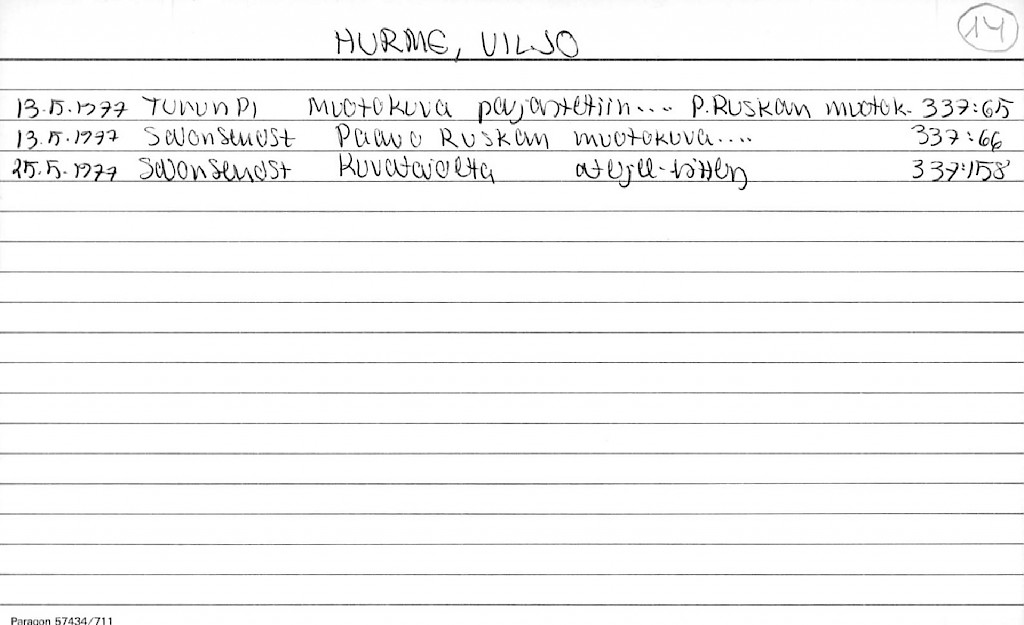 HURME, VILJO 14
13.5.1977 TURUN PI muotokuva paljastettiin.... P.RUSKAN muotok. 337:65
13.5.1977 Salonseudst Paavo RUSKAN muotokuva.... 337:66
25.5.1977 Salonseudst Kuvataioelta 337:158
Paragon 57434/711